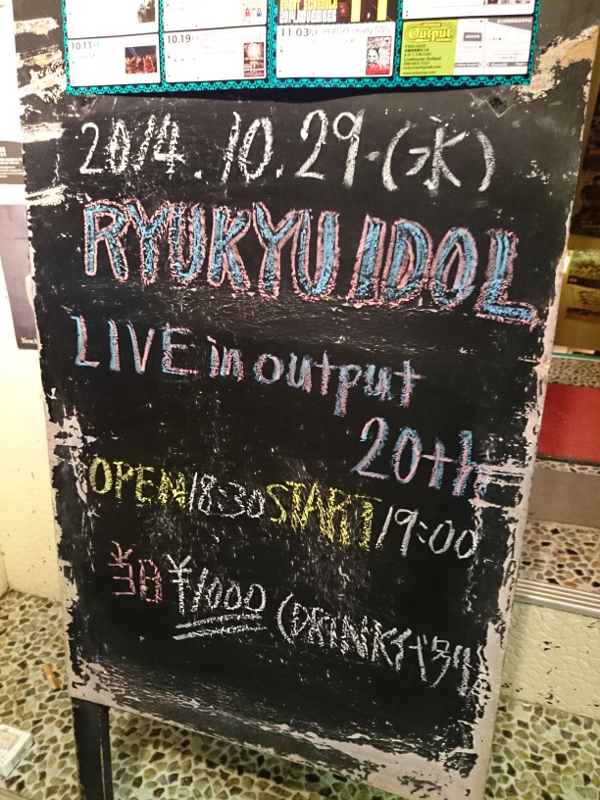 10.11
10.19
11.03
Output
2014.10.29.(水)
RYUKYU IDOL
LIVE in output
20th
OPEN 18:30 START 19:00
当日 ¥1000 (DRINK代別)